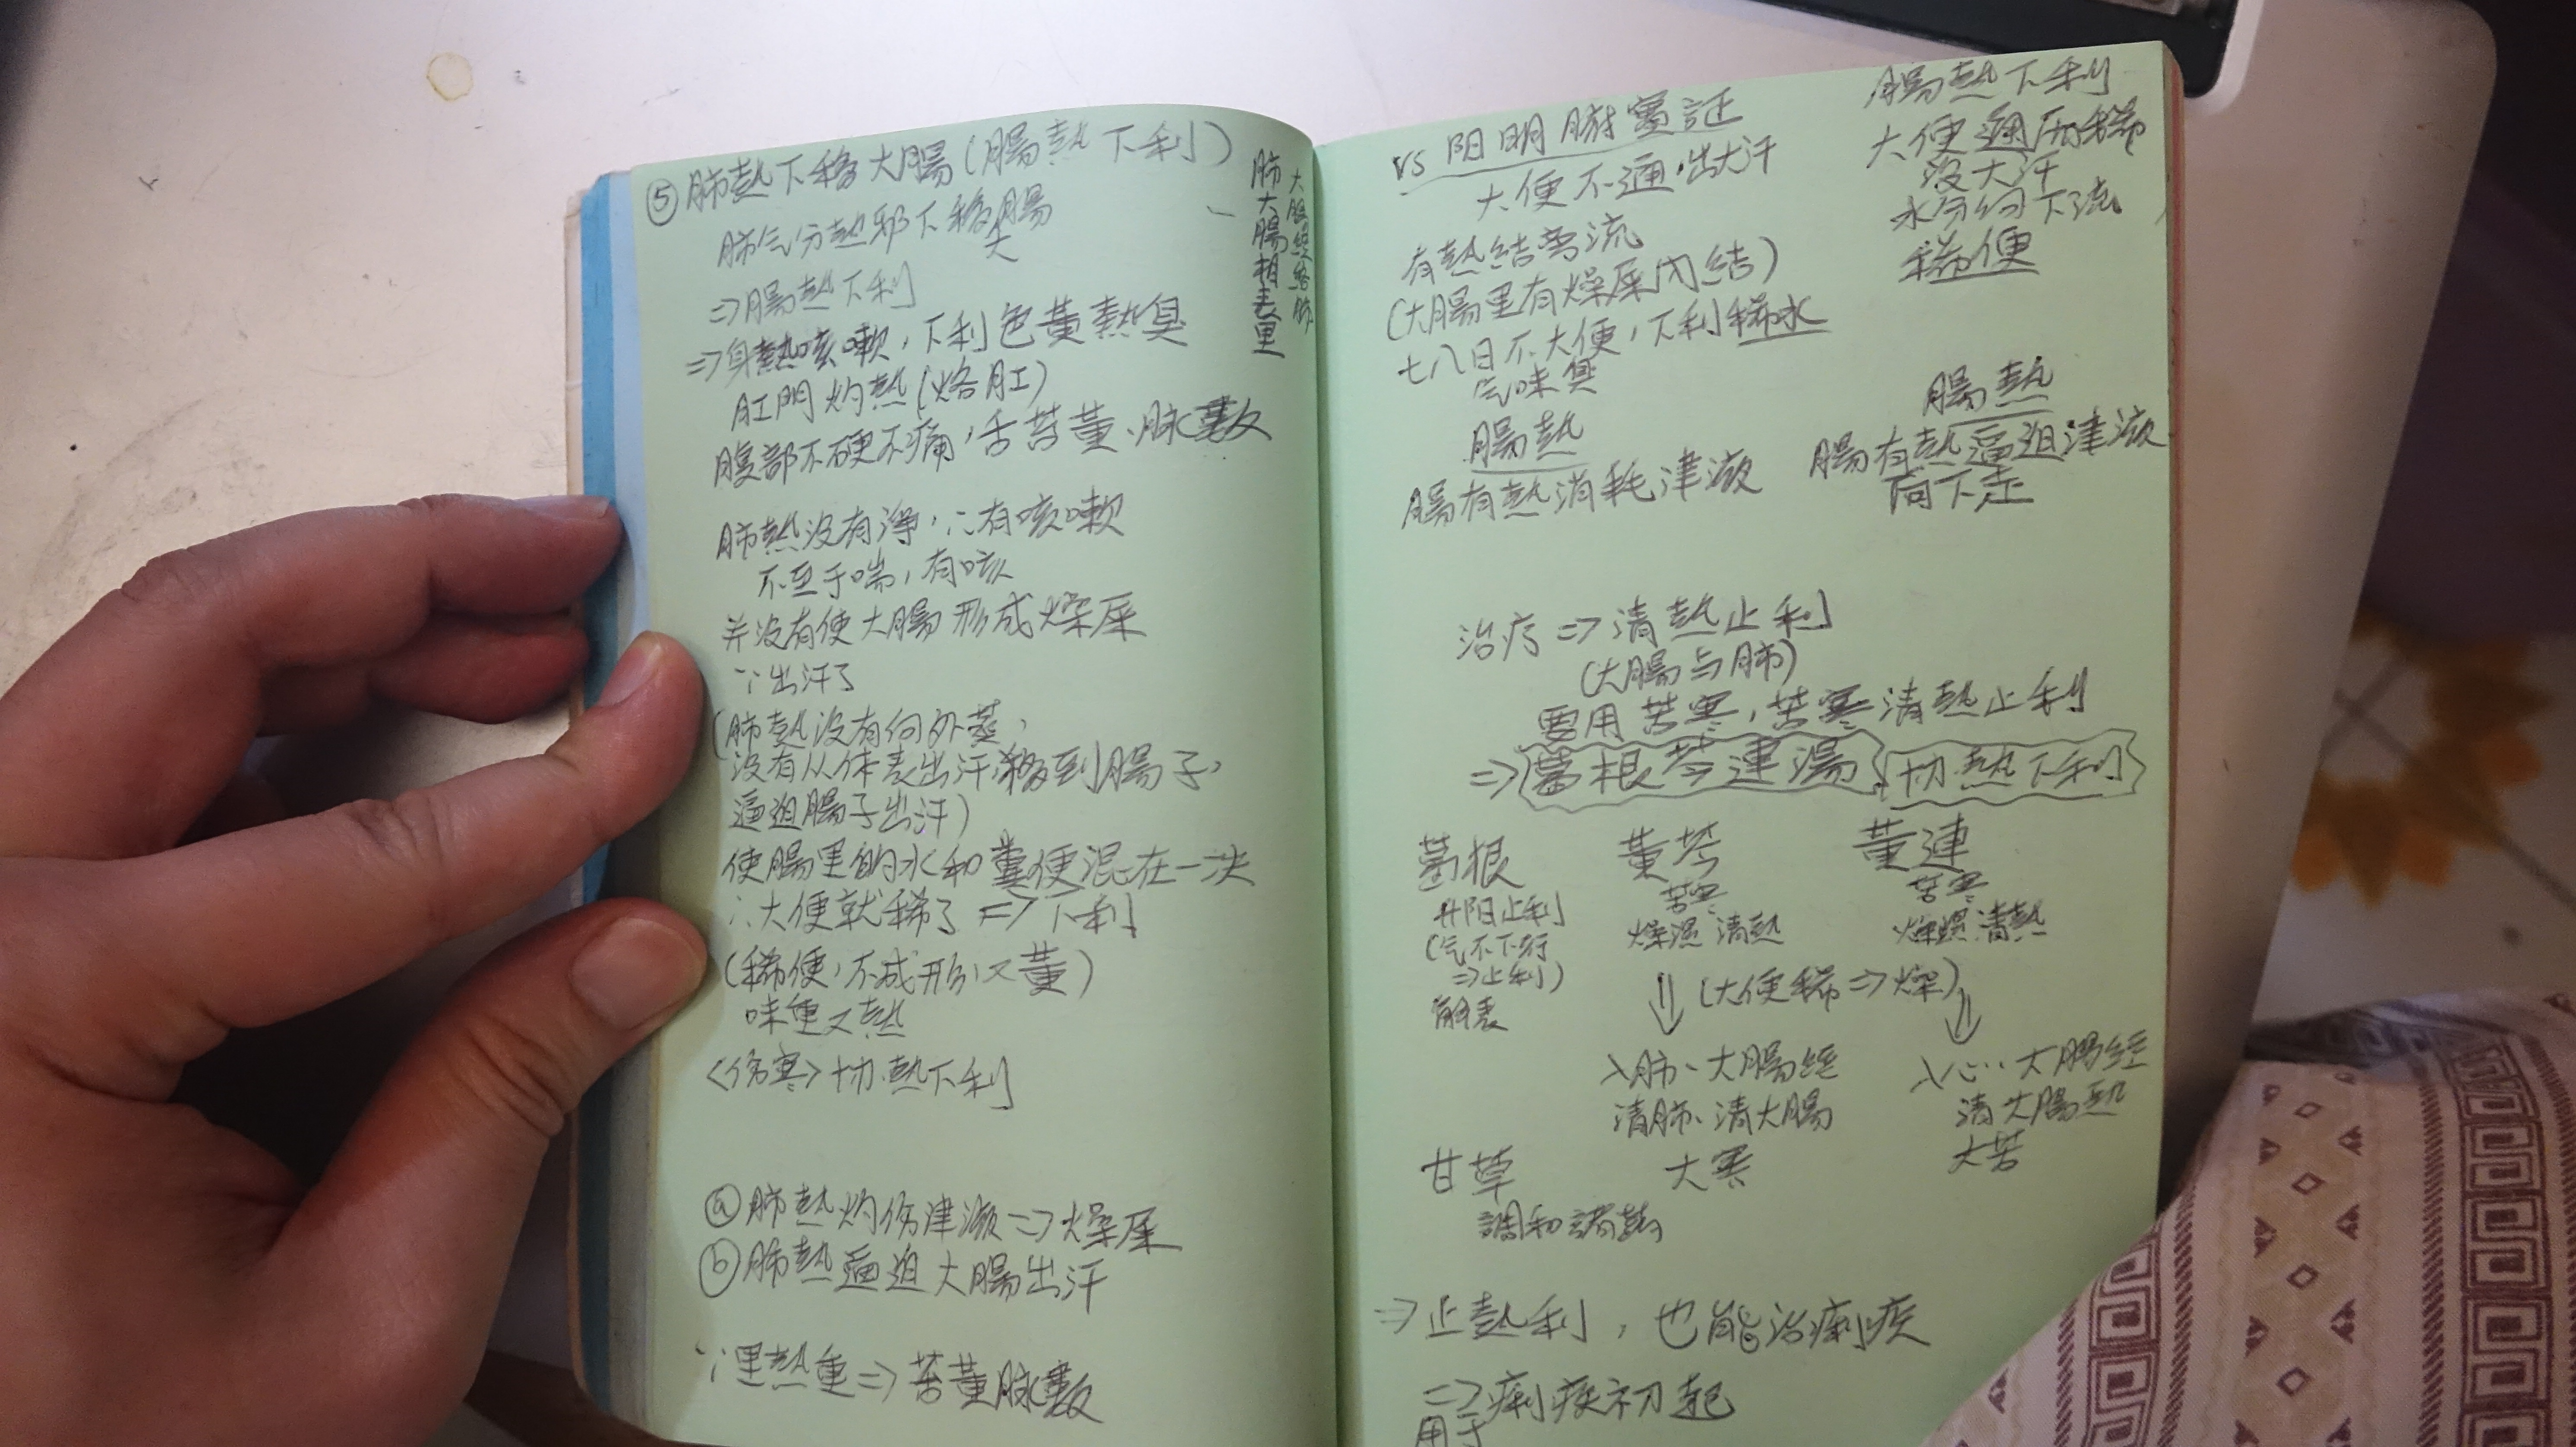 ⑤ 肺熱下移大腸(腸熱下利)
肺气分熱邪下移大腸
⇒腸熱下利
⇒身熱咳嗽，下利色黃熱臭
肛門灼熱(烙肛)
腹部不硬不痛，舌苔黃、脉數
肺熱没有淨，∴有咳嗽
不至于喘，有咳
并没有使大腸形成燥屎
∵出汗了
(肺熱没有向外蒸，
没有从体表出汗，移到腸子，
逼迫腸子出汗)
使腸里的水和糞便混在一块
∴大便就稀了 ⇒下利
(稀便，不成形，又黃)
味重又熱
<伤寒> 协熱下利
ⓐ肺熱灼伤津液⇒燥屎
ⓑ肺熱逼迫大腸出汗
∵里熱重⇒苔黃脉數
肺大腸相表里
大腸經络肺
vs 阳明腑實証
大便不通·出大汗
有熱結旁流
(大腸里有燥屎内結)
七八日不大便，下利稀水
气味臭
腸熱
腸有熱消耗津液
腸熱下利
大便通而稀
没大汗
水分向下流
稀便
腸熱
腸有熱逼迫津液
向下走
治疗⇒清熱止利
(大腸与肺)
要用苦寒，苦寒清熱止利
⇒葛根芩連湯 协熱下利
葛根
升阳止利
(气不下行
⇒止利)
解表
黃芩
苦寒
燥濕清熱
黃連
苦寒
燥濕清熱
⇓ (大便稀⇒燥) ⇓
入肺、大腸經
清肺、清大腸
大寒
入心、大腸經
清大腸熱
大苦
甘草
調和諸藥
⇒止熱利，也能治痢疾
⇒痢疾初起
用于